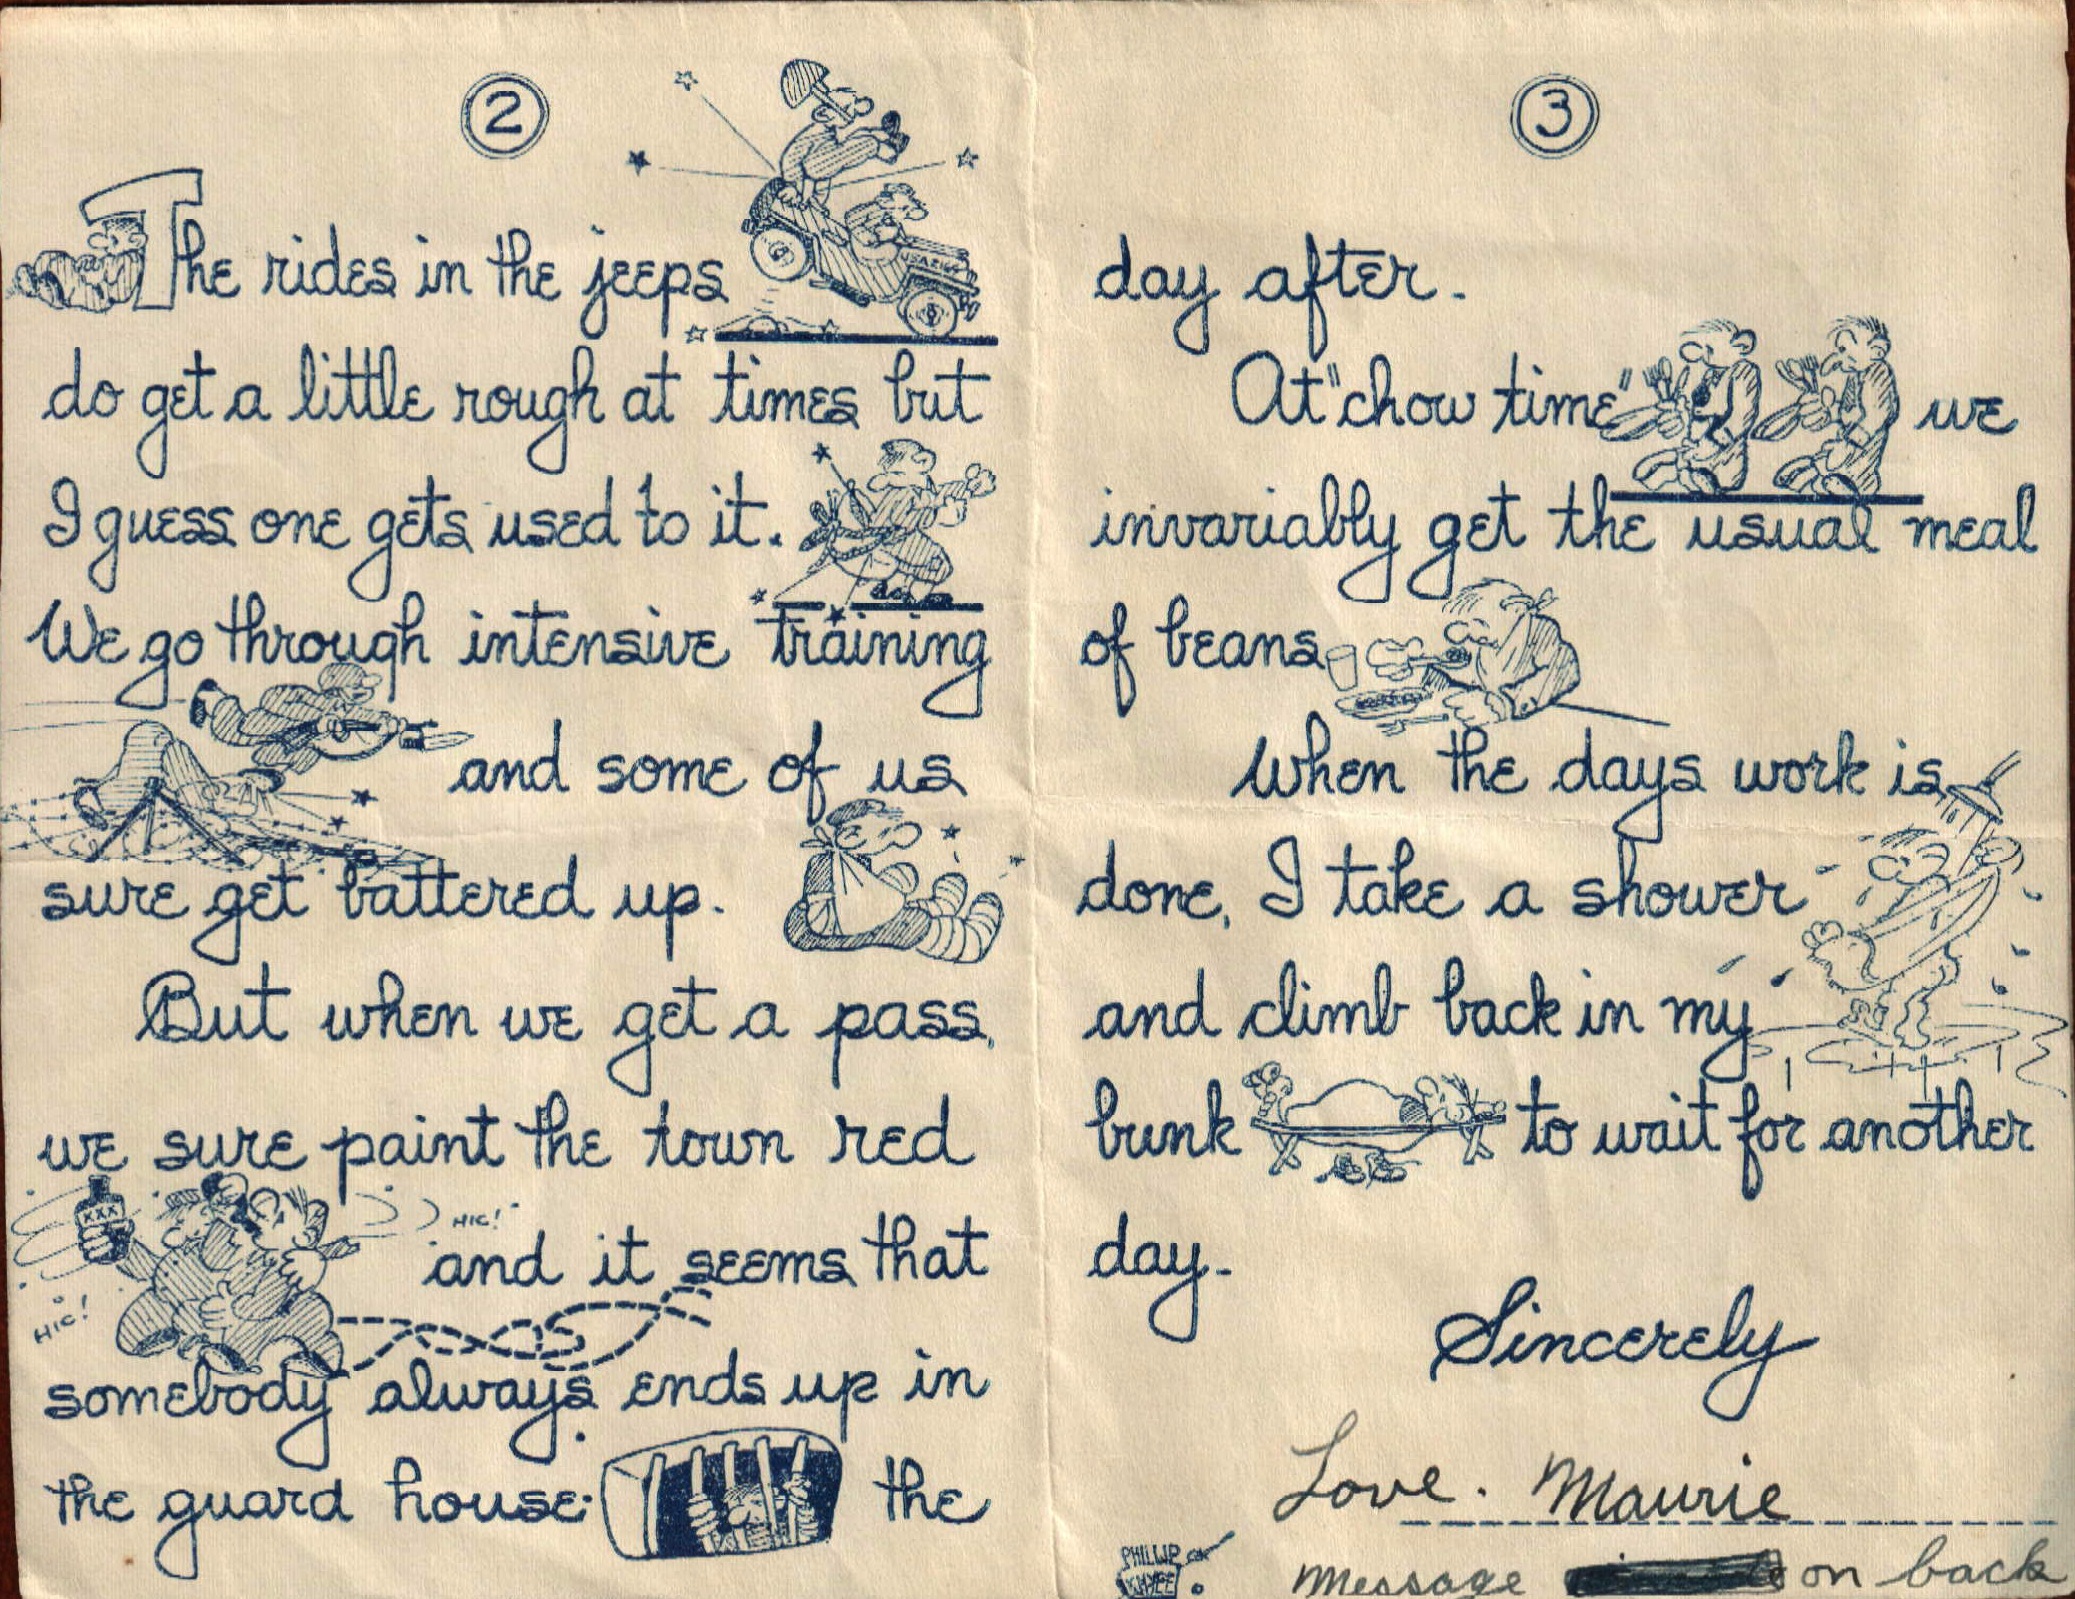 2
The rides in the jeeps
do get a little rough at times but
I guess one gets used to it.
We go through intensive training
and some of us
sure get battered up.
But when we get a pass,
we sure paint the town red
XXX
HIC!
and it seems that
HIC!
somebody always ends up in
the guard house
the
3
day after.
At "chow time" we
invariably get the usual meal
of beans
When the days work is
done, I take a shower
and climb back in my
bunk to wait for another
day.
Sincerely
Love. Maurie
PHILLIP
Message on back